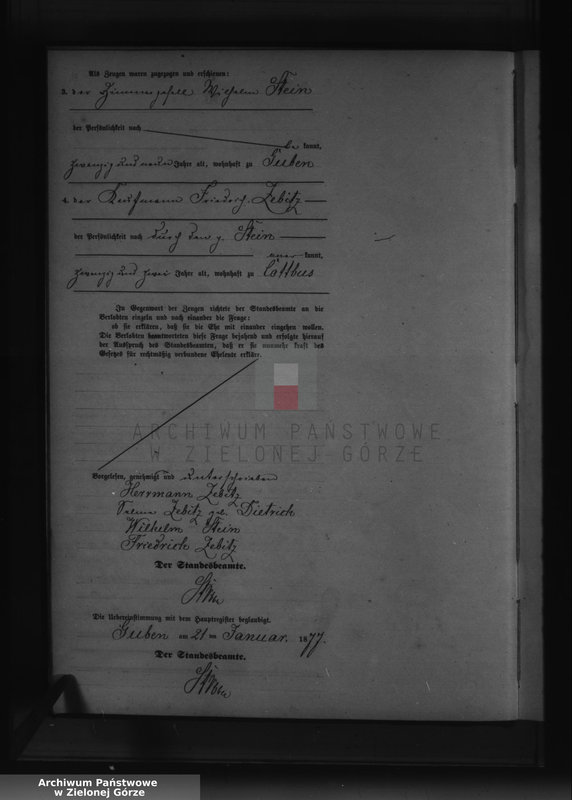 Als Zeugen waren zugezogen und erschienen:
3. der Zimmergesell Wilhelm Stein
der Persönlichkeit nach
be kannt,
zwanzig und neun Jahre alt, wohnhaft zu Guben
4. der Kaufmann Friedrich Zebitz
der Persönlichkeit nach durch den p. Stein
aner kannt,
zwanzig und zwei Jahre alt, wohnhaft zu Cottbus
In Gegenwart der Zeugen richtete der Standesbeamte an die
Verlobten einzeln und nach einander die Frage:
ob sie erklären, daß sie die Ehe mit einander eingehen wollen.
Die Verlobten beantworteten diese Frage bejahend und erfolgte hierauf
der Ausspruch des Standesbeamten, daß er sie nunmehr kraft des
Gesetzes für rechtmäßig verbundene Eheleute erkläre.
ARCHIWUM PAŃSTWOWE
W ZIELONEJ GÓRZE
Vorgelesen, genehmigt und unterschrieben
Herrmann Zebitz
Zebitz geb. Dietrich
Wilhelm Stein
Friedrich Zebitz
Der Standesbeamte.
Die Uebereinstimmung mit dem Hauptregister beglaubigt.
Guben am 21 ten Januar 1877.
Der Standesbeamte.
Archiwum Państwowe
w Zielonej Górze